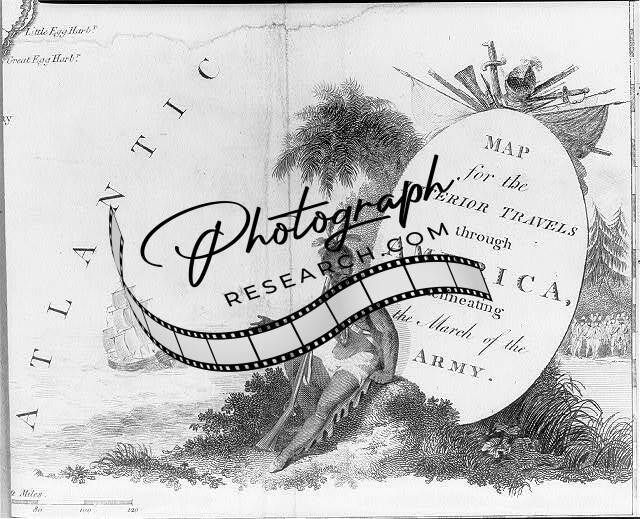 Little Egg Harbr.
Great Egg Harbr.
ATLANTIC
MAP
for the
ERIOR TRAVELS
through
RICA,
elineating
the March of the
ARMY.
Photograph
RESEARCH.COM
Miles.
80 100 120